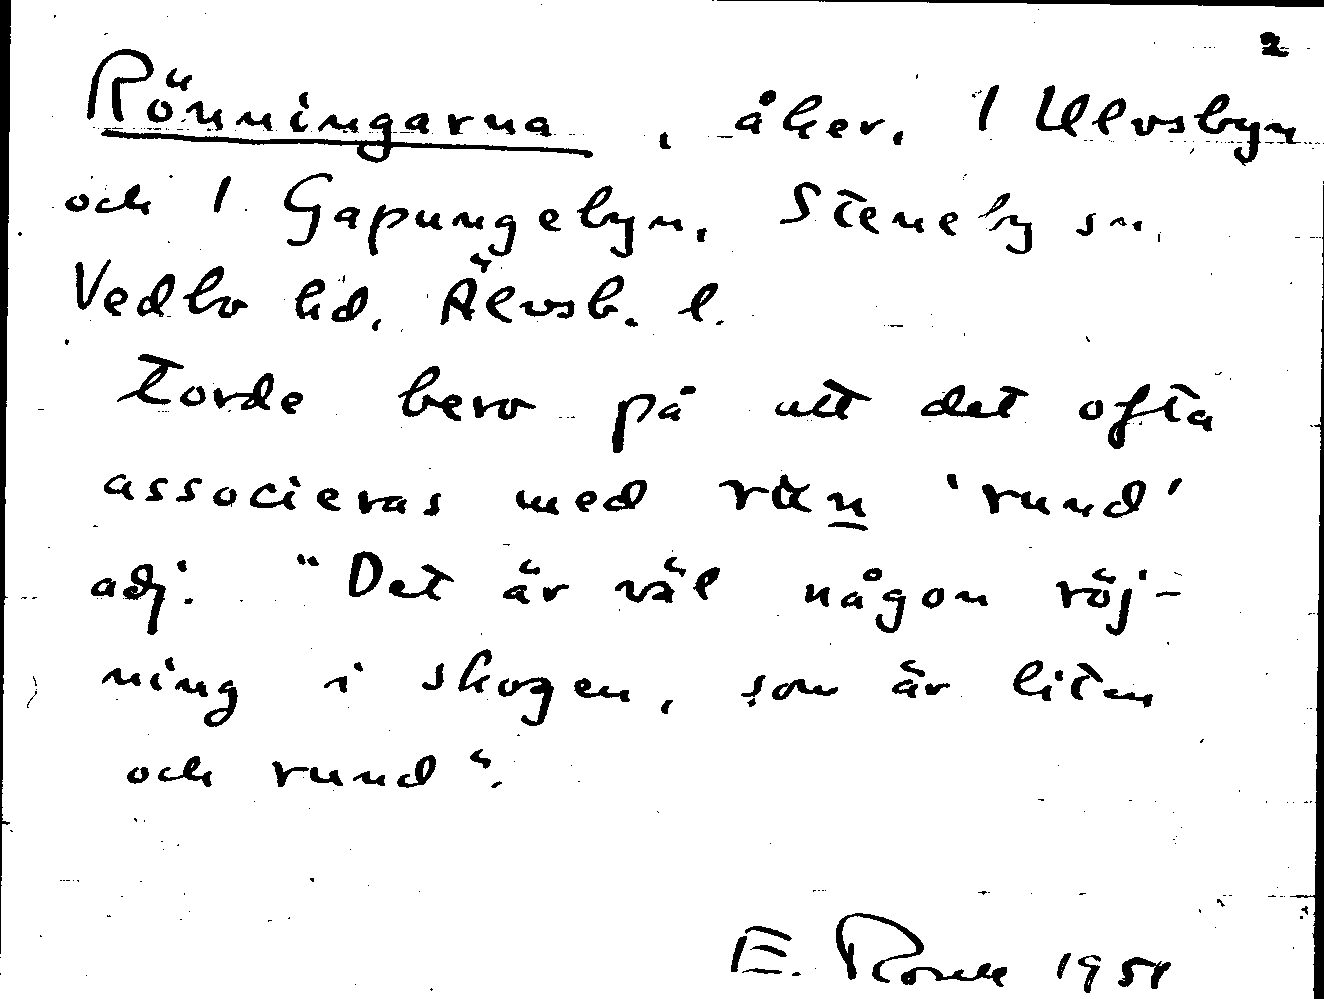 2
Rönningarna, åker. 1 Ulvsbyn
och 1 Gapungebyn, Steneby sn,
Vedbo hd, Älvsb. l.
torde bero på att det ofta
associeras med 'rund'
adj. "Det är väl någon röj-
ning i skogen, som är liten
och rund".
E. 1951